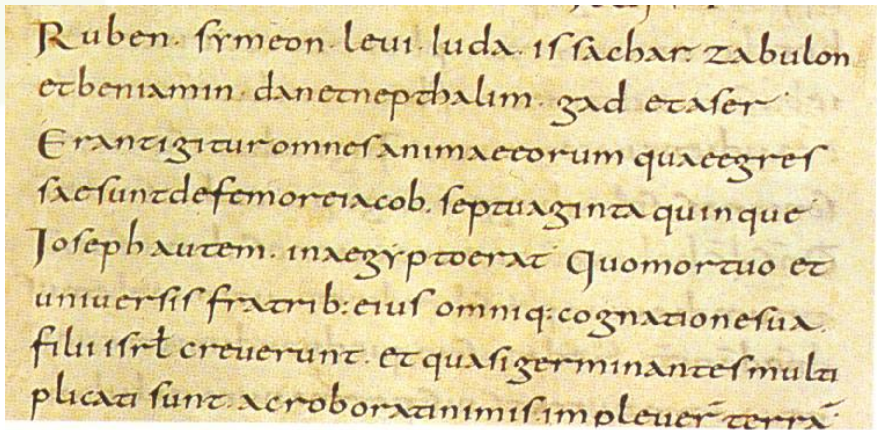 Ruben· symeon· levi· Iuda· issachar· zabulon
et beniamin· dan et nepthalim· gad et aser
Erant igitur omnes animae eorum quae egres
sae sunt de femore iacob· septuaginta quinque
Ioseph autem· in aegypto erat Quo mortuo et
universis fratrib: eius omniq: cognatione sua·
filii isrł creverunt· et quasi germinantes multi
plicati sunt· ac roborati nimis· impleveř terrā